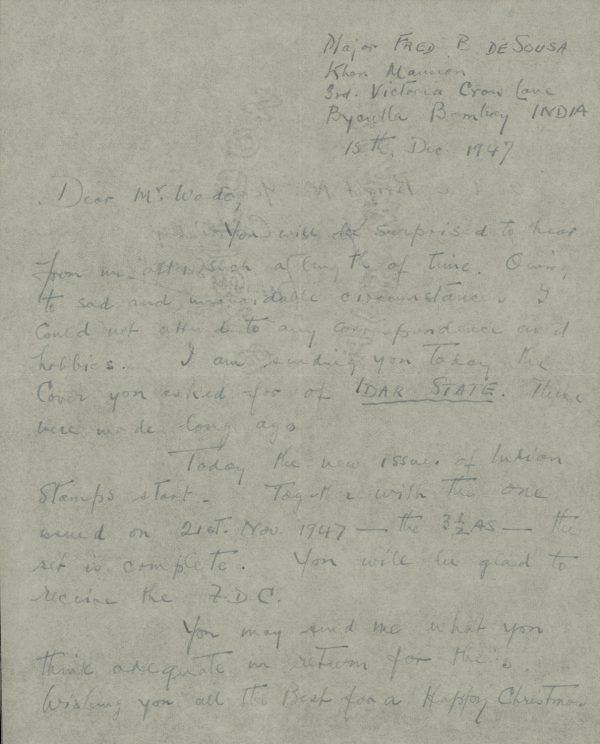 Major FRED P. DESOUSA
Khan Mansion
3rd. Victoria Cross Lane
Byculla Bombay INDIA
15th. Dec. 1947
Dear Mr. Wade,
You will be surprised to hear
from me after such a length of time. Owing
to sad and unavoidable circumstances I
could not attend to any correspondence and
hobbies. I am sending you today the
Cover you asked for of IDAR STATE. These
were made long ago
Today the new issue of Indian
Stamps start. Together with the one
issued on 21st. Nov. 1947 — the 3½ AS — the
set is complete. You will be glad to
receive the F.D.C.
You may send me what you
think adequate in return for this.
Wishing you all the Best for a Happy Christmas